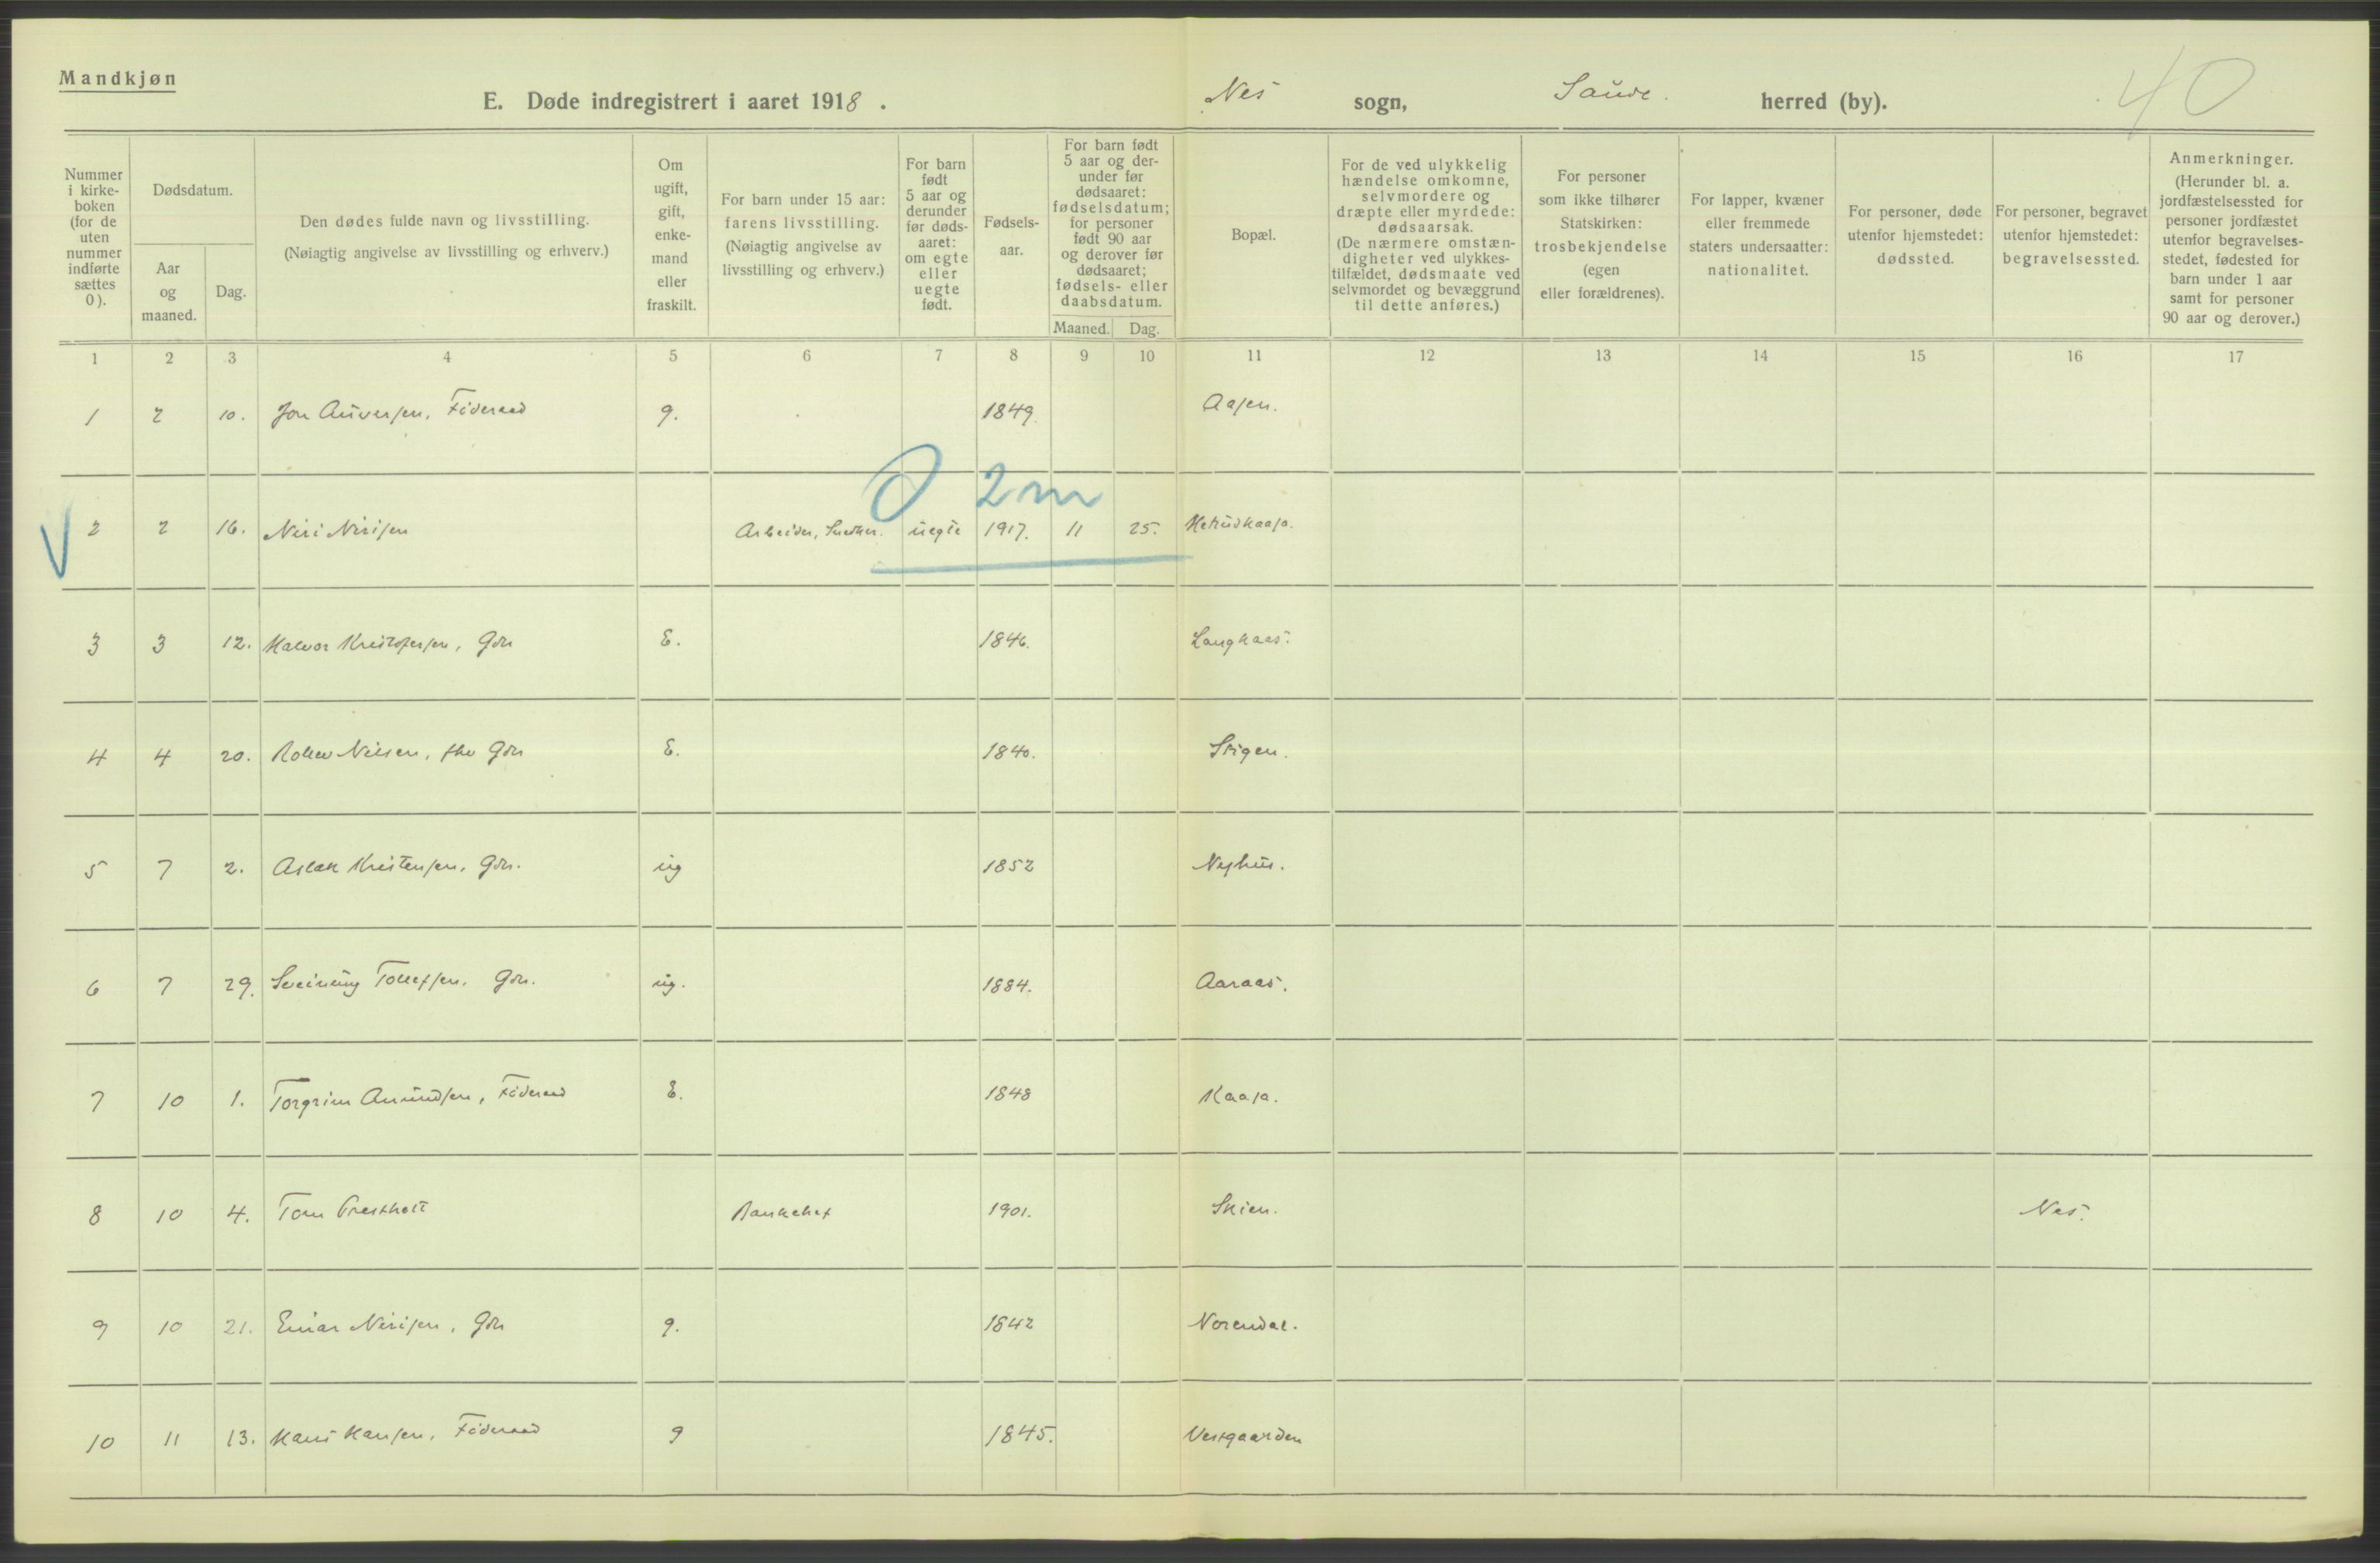 Mandkjøn
E. Døde indregistrert i aaret 1918. Nes sogn, Saude. herred (by). 40
Nummer i kirke-boken (for de uten nummer indførte sættes 0).
Dødsdatum.
Aar og maaned.
Dag.
Den dødes fulde navn og livsstilling.
(Nøiagtig angivelse av livsstilling og erhverv.)
Om ugift, gift, enke-mand eller fraskilt.
For barn under 15 aar: farens livsstilling. (Nøiagtig angivelse av livsstilling og erhverv.)
For barn født 5 aar og derunder før døds-aaret: om egte eller uegte født.
Fødsels-aar.
For barn født 5 aar og der-under før dødsaaret: fødselsdatum; for personer født 90 aar og derover før dødsaaret; fødsels- eller daabsdatum.
Maaned. Dag.
Bopæl.
For de ved ulykkelig hændelse omkomne, selvmordere og dræpte eller myrdede: dødsaarsak. (De nærmere omstæn-digheter ved ulykkes-tilfældet, dødsmaate ved selvmordet og bevæggrund til dette anføres.)
For personer som ikke tilhører Statskirken: trosbekjendelse (egen eller forældrenes).
For lapper, kvæner eller fremmede staters undersaatter: nationalitet.
For personer, døde utenfor hjemstedet: dødssted.
For personer, begravet utenfor hjemstedet: begravelsessted.
Anmerkninger. (Herunder bl. a. jordfæstelsessted for personer jordfæstet utenfor begravelses-stedet, fødested for barn under 1 aar samt for personer 90 aar og derover.)
1 2 3 4 5 6 7 8 9 10 11 12 13 14 15 16 17
1 2 10. Jon Auversen, Föderaad g. 1849. Aasen.
0 2m
2 2 16. Niri Nirisen Arbeider, Snedker. uegte 1917. 11 25. Hetrudkaasa.
3 3 12. Halvor Kristofersen, Gbr E. 1846. Langkaas.
4 4 20. Rollev Nilsen, fhv Gbr E. 1840. Stigen.
5 7 2. Aslak Kristensen, Gbr. ug 1852 Neshus.
6 7 29. Sveinung Tollefsen, Gbr. ug. 1884. Aaraas.
7 10 1. Torgrim Amundsen, Föderaad E. 1848 Kaasa.
8 10 4. Tom Prestholt Bankchef 1901. Skien. Nes.
9 10 21. Einar Nirisen, Gbr g. 1842 Norendal.
10 11 13. Hans Hansen, Föderaad g 1845. Vestgaarden